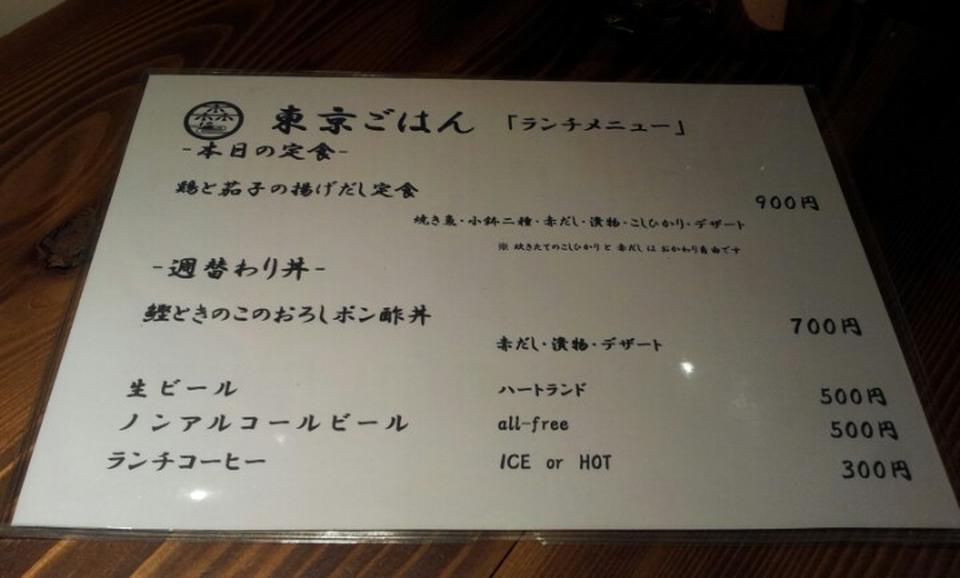 東京ごはん 「ランチメニュー」
-本日の定食-
鶏と茄子の揚げだし定食 900円
焼き魚・小鉢二種・赤だし・漬物・こしひかり・デザート
※ 炊きたてのこしひかりと 赤だし は おかわり自由です
-週替わり丼-
鰹ときのこのおろしポン酢丼 700円
赤だし・漬物・デザート
生ビール ハートランド 500円
ノンアルコールビール all-free 500円
ランチコーヒー ICE or HOT 300円